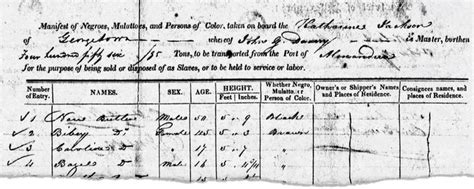 Manifest of Negroes, Mulattoes, and Persons of Color, taken on board the Katharine Jackson
of Georgetown whereof John G Denny is Master, burthen
Four hundred fifty six /95 Tons, to be transported from the Port of Alexandria
for the purpose of being sold or disposed of as Slaves, or to be held to service or labor.
Number of Entry. NAMES. SEX. AGE. HEIGHT. Feet Inches. Whether Negro, Mulatto, or Person of Color. Owner's or Shipper's Names and Places of Residence. Consignees names, Places of Residence.
1 Nace Butler Male 50 5 9 Black
2 Bibey Do Female 5 3 Brown
3 Caroline D " 17 5 7 "
4 Basil D Male 16 5 "